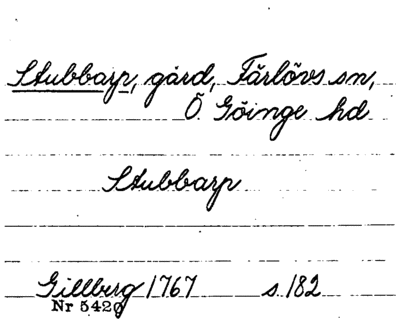 Stubbarp, gård, Färlövs sn,
Ö. Göinge hd
Stubbarp
Gillberg 1767 s. 182
Nr 5420